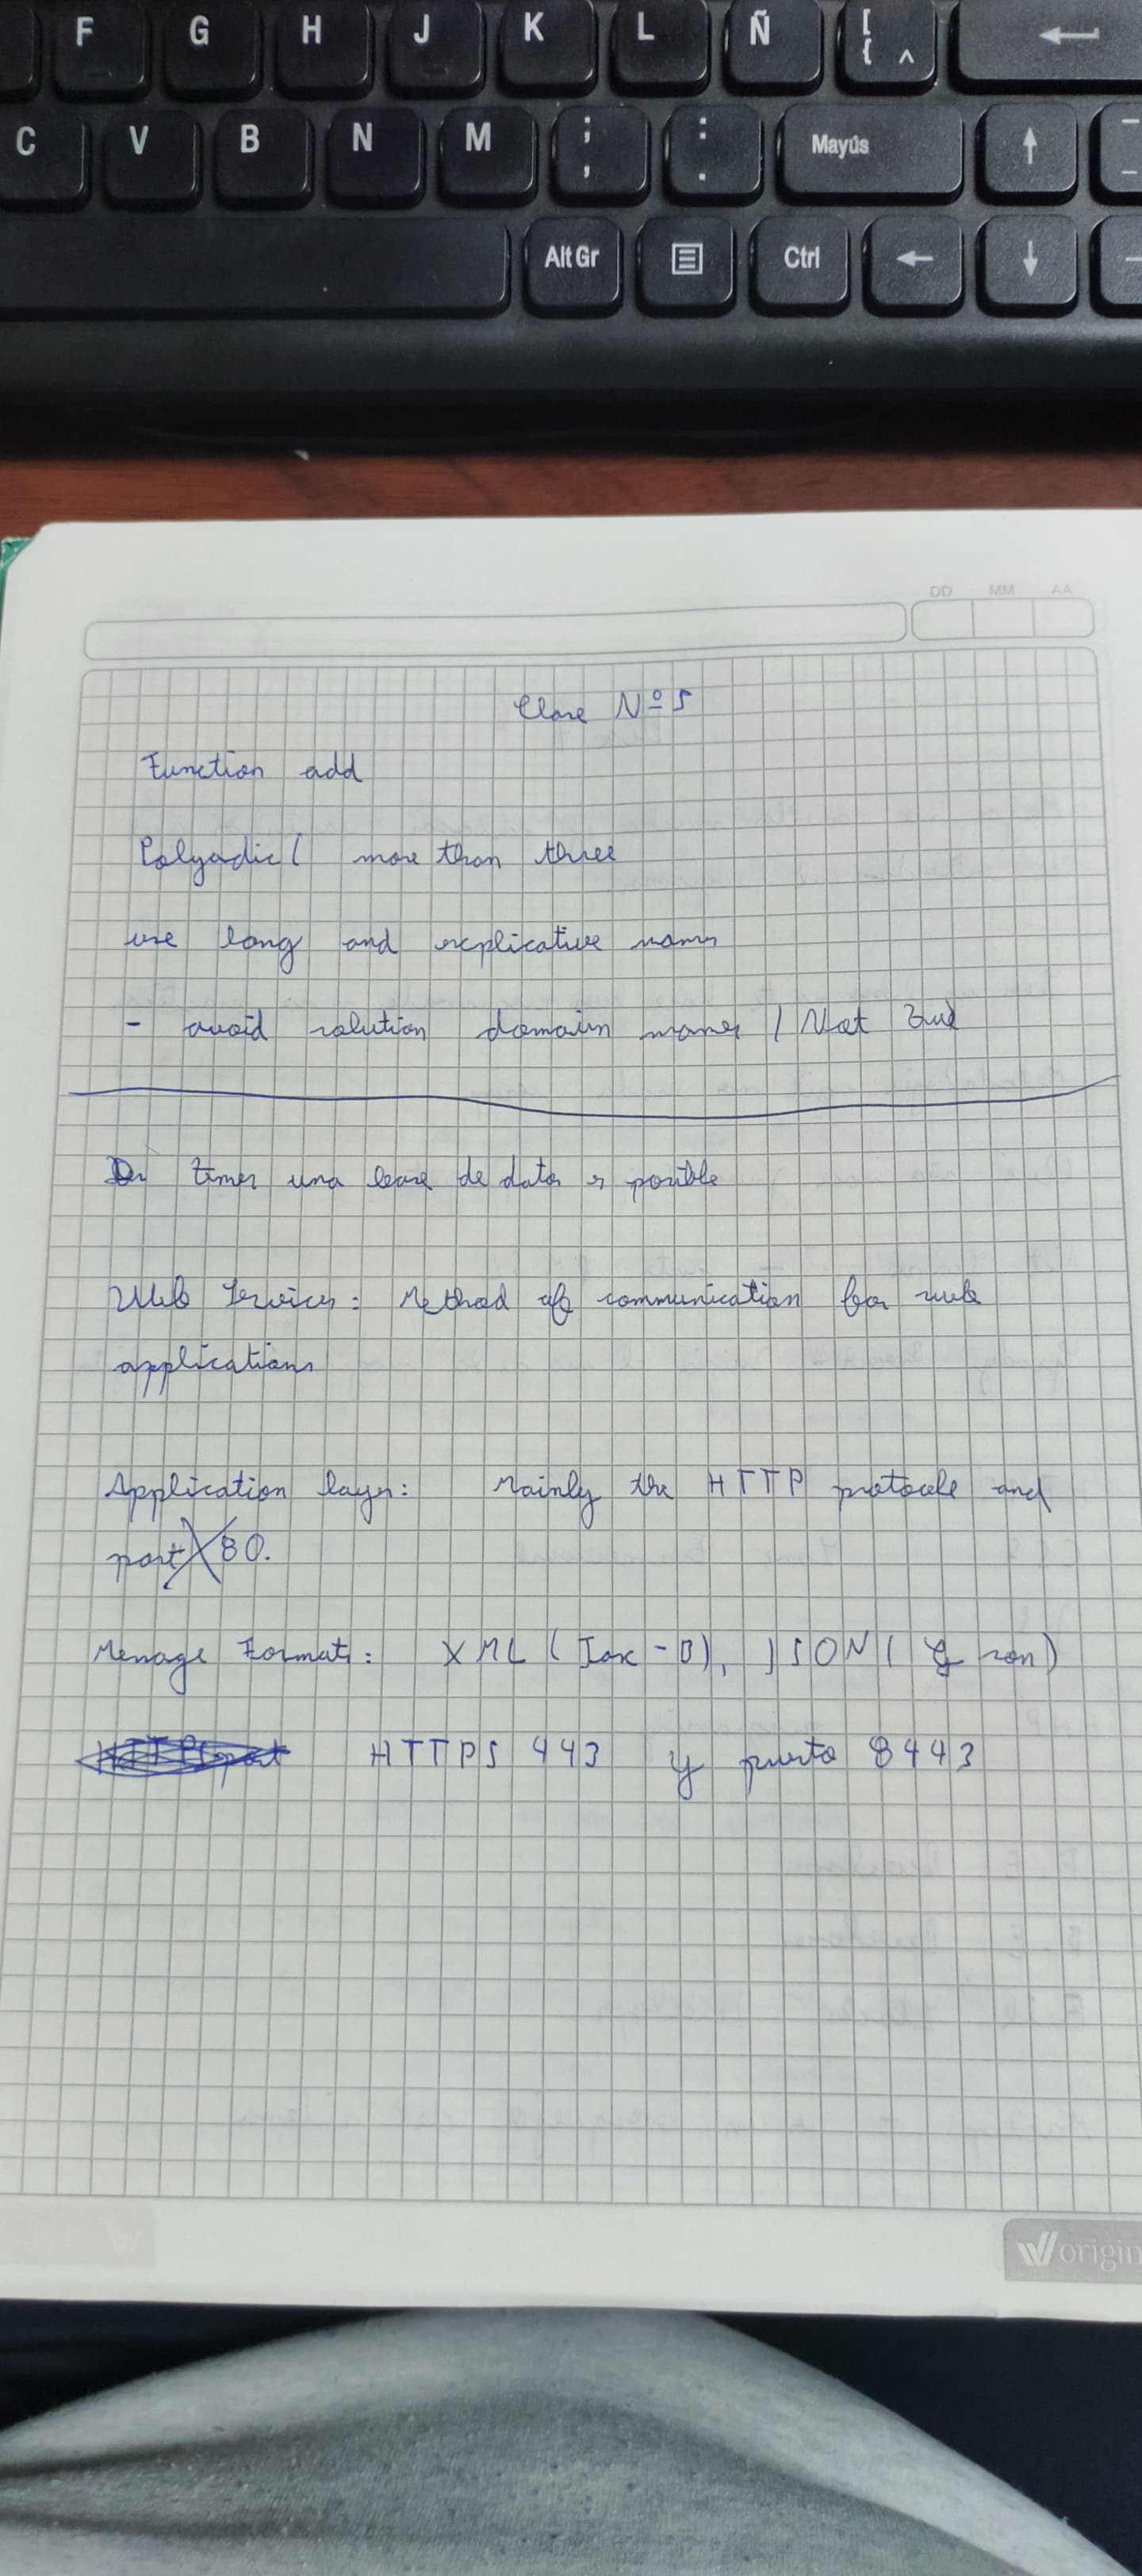 F G H J K L Ñ [ { ^ ←
C V B N M ; , : . Mayús ↑
Alt Gr Ctrl ← ↓
DD MM AA
Clase Nº 5
Function add
Polyadic ( more than three
use long and explicative names
- avoid solution domain names / Not
times una base de datos es posible
Web Services: Method of communication for web
applications
Application layer: Mainly the HTTP protocole and
port 80.
Message Format: XML (Jax-B), JSON ( Gson)
HTTPS 443 y puerto 8443
origin